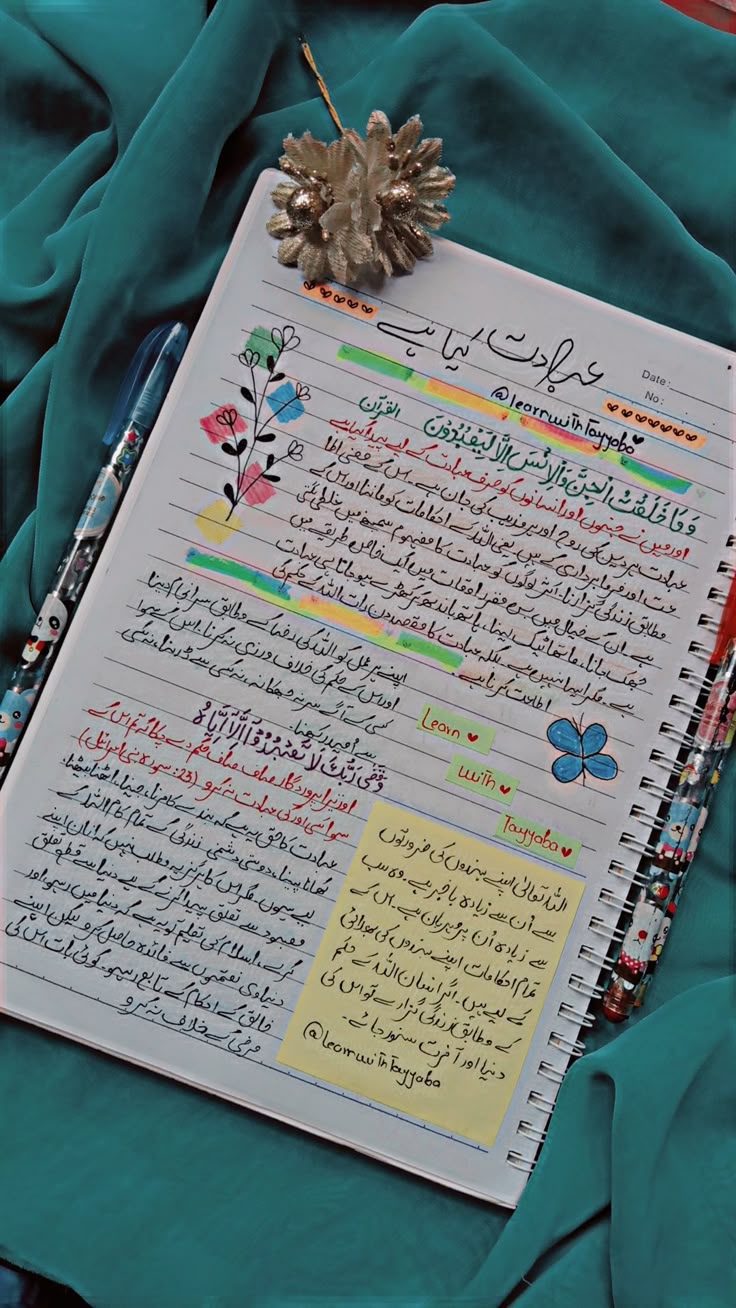 عبادت کیا ہے
Date:
No:
@learnwithTayyaba
وَمَا خَلَقْتُ الْجِنَّ وَالْاِنْسَ اِلَّا لِیَعْبُدُوْنَ القرآن
اور میں نے جنوں اور انسانوں کو صرف عبادت کے لیے پیدا کیا ہے
عبادت ہر دین کی روح اور ہر مذہب کی جان ہے۔ اس کے معنی اطا
عت اور فرمابرداری کے ہیں یعنی اللہ کے احکامات کو ماننا اور اس کے
مطابق زندگی گزارنا، اکثر لوگوں کو عبادت کا مفہوم سمجھنے میں غلطی لگتی
ہے، ان کے خیال میں بس مقررہ اوقات میں ایک خاص طریقے میں
جھک جانا، ماتھا ٹیک لینا، ہاتھ باندھ کر کھڑے ہو جانا ہی عبادت
ہے۔ مگر ایسا نہیں ہے۔ بلکہ عبادت کا مقصد دن رات اللہ کے حکم کی
اطاعت کرنا ہے۔
اپنے ہر عمل کو اللہ کی رضا کے مطابق سرانجام دینا
اور اس کے حکم کی خلاف ورزی نہ کرنا، اس کے سوا
کسی کے آگے سر نہ جھکانا، نہ کسی سے ڈرنا، نہ کسی
سے امید رکھنا۔
وَقَضٰی رَبُّکَ اَلَّا تَعْبُدُوْۤا اِلَّاۤ اِیَّاہُ
اور تیرا پروردگار صاف صاف حکم دے چکا کہ تم اس کے
سوا کسی اور کی عبادت نہ کرو (23: سورہ بنی اسرائیل)
عبادت کا حق یہ ہے کہ بندے کا مرنا، جینا، اٹھنا بیٹھنا،
کھانا پینا، دوستی، دشمنی، زندگی کے تمام کام اللہ کے
لیے ہوں۔ مگر اس کا ہرگز یہ مطلب نہیں کہ انسان اپنے
معبود سے تعلق پیدا کرنے کے لیے دنیا سے قطع تعلق
کرے، اسلام کی تعلیم تو یہ ہے کہ دنیا میں رہو اور
دنیاوی نعمتوں سے فائدہ حاصل کرو لیکن اپنے
خالق کے احکام کے تابع رہو۔ کوئی بات اس کی
مرضی کے خلاف نہ کرو
Learn
with
Tayyaba
اللہ تعالیٰ اپنے بندوں کی ضرورتوں
سے اُن سے زیادہ باخبر ہے۔ وہ سب
سے زیادہ اُن پر مہربان ہے۔ اس کے
تمام احکامات اپنے بندوں کی بھلائی
کے لیے ہیں۔ اگر انسان اللہ کے حکم
کے مطابق زندگی گزارے تو اس کی
دنیا اور آخرت سنور جائے۔
@learnwithTayyaba